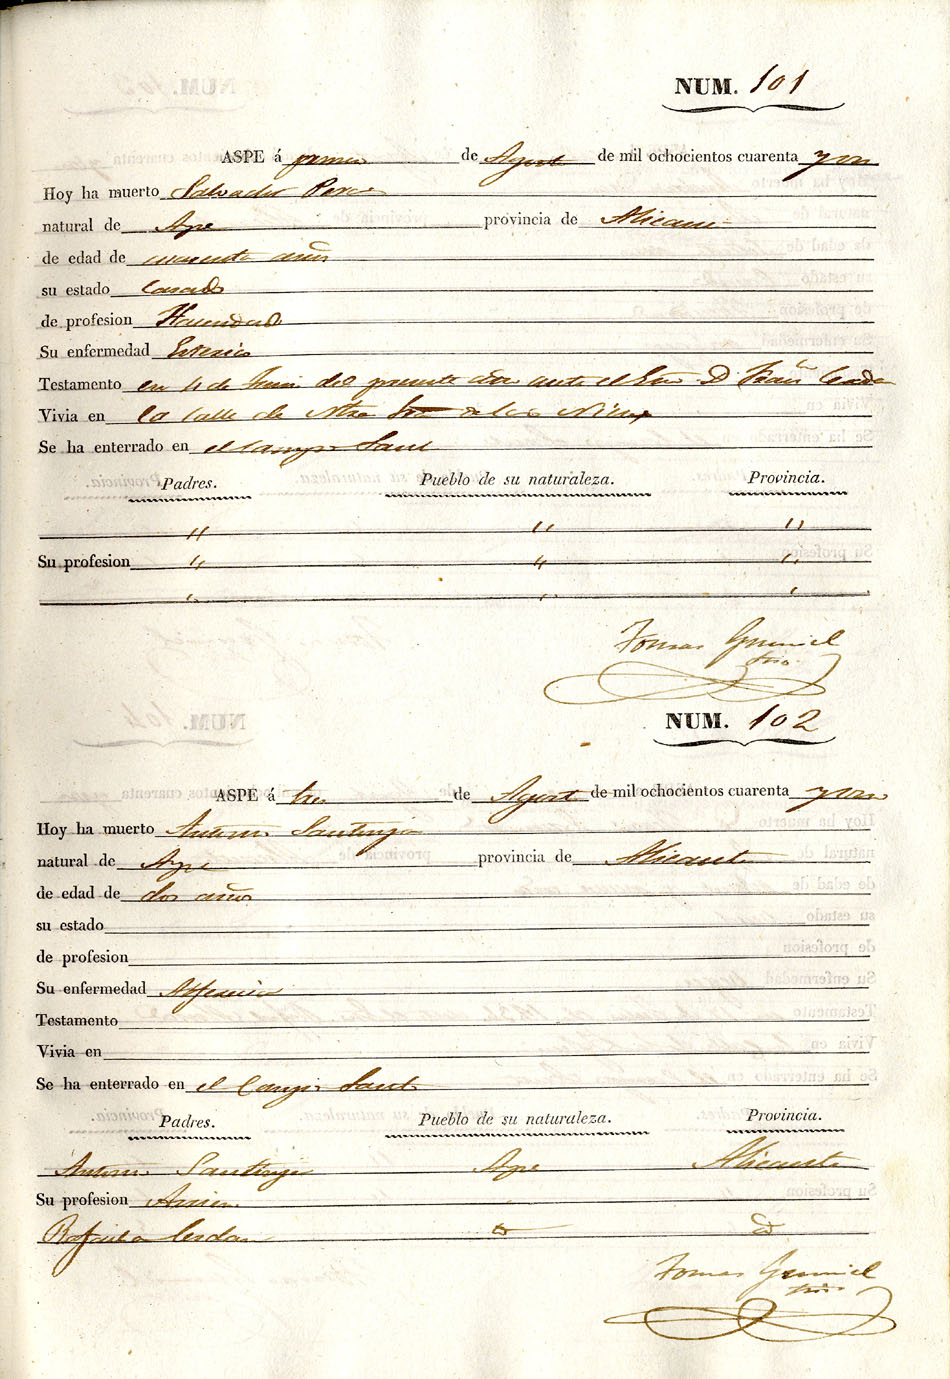 NUM. 101
ASPE á primero de Agosto de mil ochocientos cuarenta y uno
Hoy ha muerto Salvador Perez
natural de Aspe provincia de Alicante
de edad de cuarenta años
su estado Casado
de profesion Hacendado
Su enfermedad
Testamento en 4 de Junio del presente año ante el Sno D. Fran.
Vivia en la Calle de Ntra Sra de las Nieves
Se ha enterrado en el Campo Santo
Padres. Pueblo de su naturaleza. Provincia.
" " "
Su profesion " " "
" " "
Tomas Gumiel
Srio.
NUM. 102
ASPE á tres de Agosto de mil ochocientos cuarenta y uno
Hoy ha muerto Antonio Santonja
natural de Aspe provincia de Alicante
de edad de dos años
su estado
de profesion
Su enfermedad Alferecia
Testamento
Vivia en
Se ha enterrado en el Campo Santo
Padres. Pueblo de su naturaleza. Provincia.
Antonio Santonja Aspe Alicante
Su profesion Arriero
Rafaela Cerdan
Tomas Gumiel
Srio